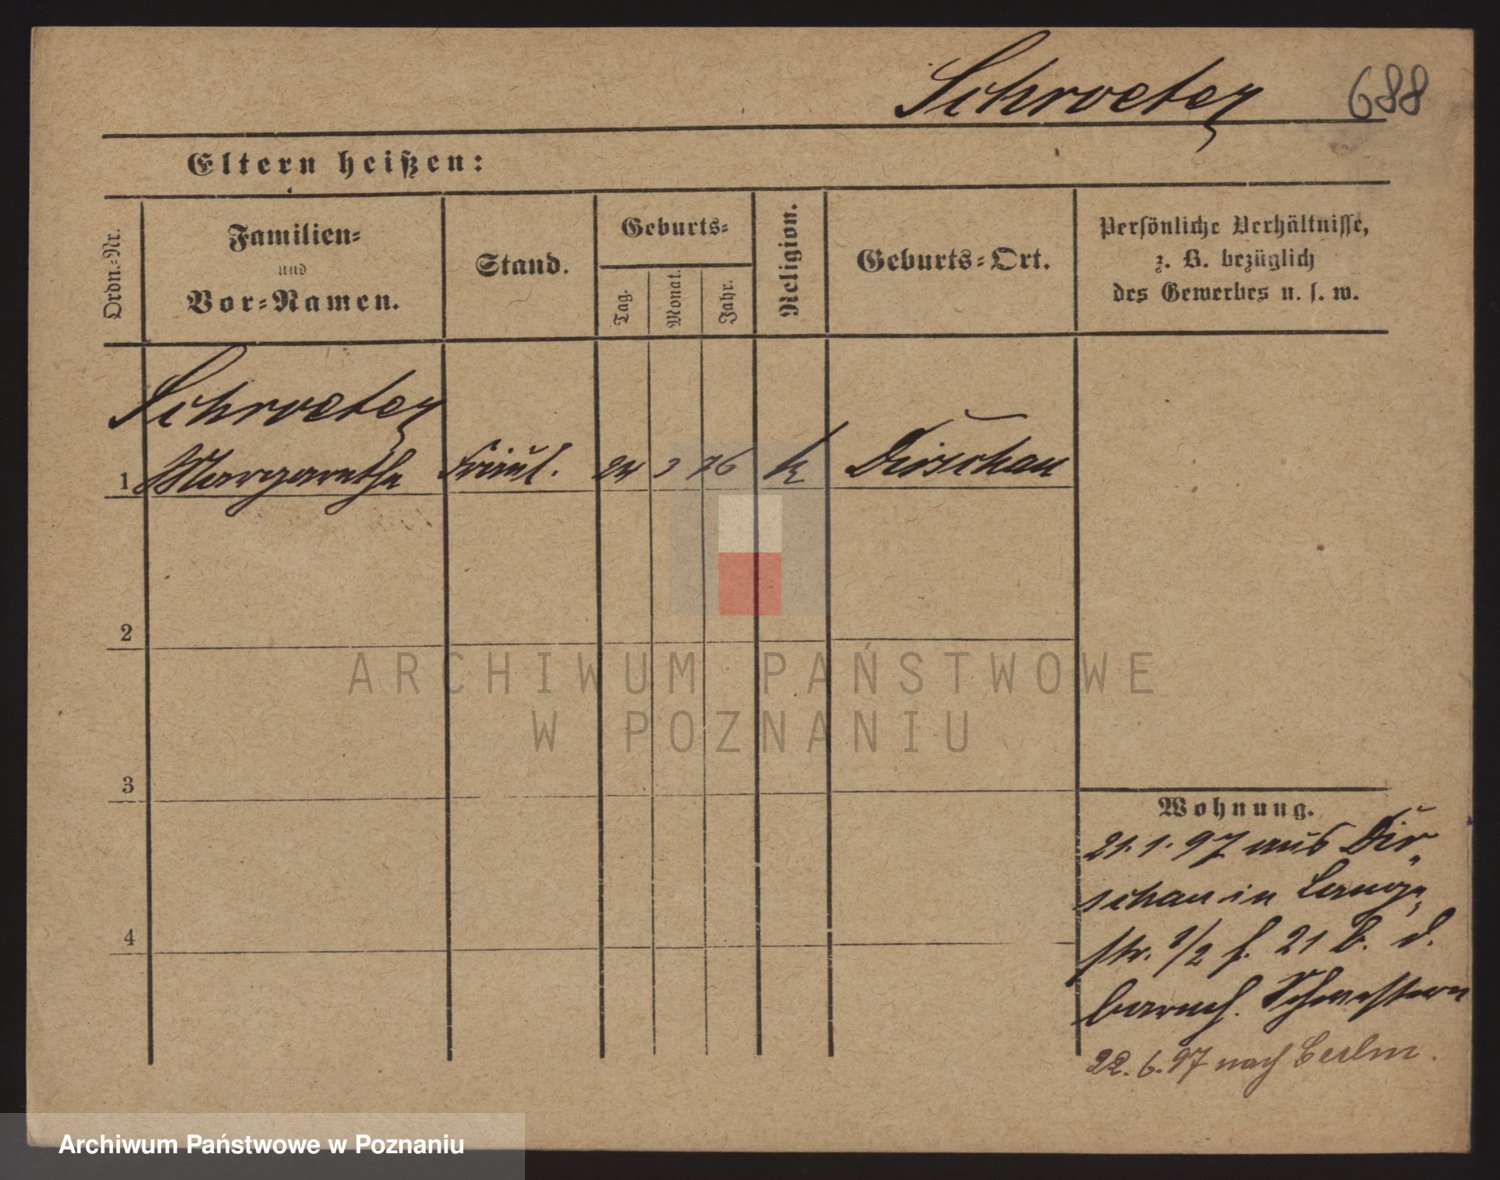 Schroeter 688
Eltern heißen:
Ordn.-Nr.
Familien-
und
Vor-Namen.
Stand.
Geburts-
Tag.
Monat.
Jahr.
Religion.
Geburts-Ort.
Persönliche Verhältnisse,
z. B. bezüglich
des Gewerbes u. s. w.
Schroeter
1 Margarethe Fräul. 24 3 76 k Dirschau
2
3
4
Wohnung.
21.1.97 aus Dir-
schau in Lange-
str. 1/2 f. 21 b. d.
barmh. Schwestern
22.6.97 nach Berlin.
ARCHIWUM PAŃSTWOWE
W POZNANIU
Archiwum Państwowe w Poznaniu